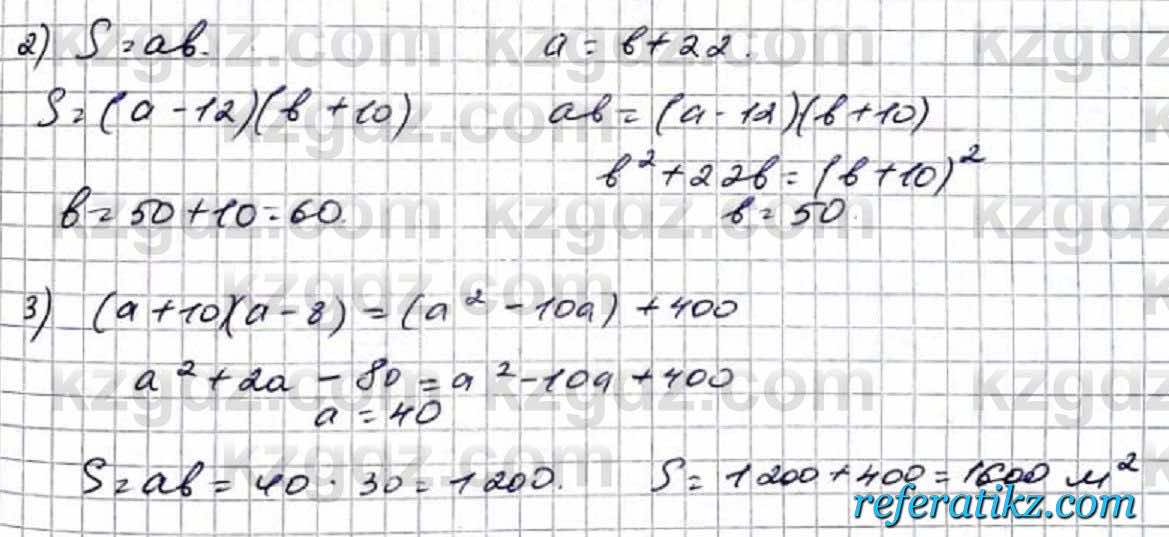 2) S = ab. a = b + 22.
S = (a - 12)(b + 10) ab = (a - 12)(b + 10)
b² + 22b = (b + 10)²
b = 50 + 10 = 60. b = 50.
3) (a + 10)(a - 8) = (a² - 10a) + 400
a² + 2a - 80 = a² - 10a + 400
a = 40
S = ab = 40 · 30 = 1200. S = 1200 + 400 = 1600 м²
referatikz.com
kzgdz.com